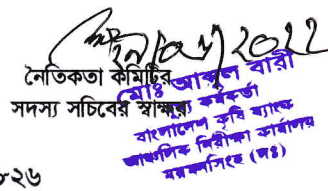 ২০২২
নৈতিকতা কমিটির
সদস্য সচিবের স্বাক্ষর
মোঃ আবদুল বারী
মুখ্য কর্মকর্তা
বাংলাদেশ কৃষি ব্যাংক
আঞ্চলিক নিরীক্ষা কার্যালয়
ময়মনসিংহ (দঃ)
৮২৬